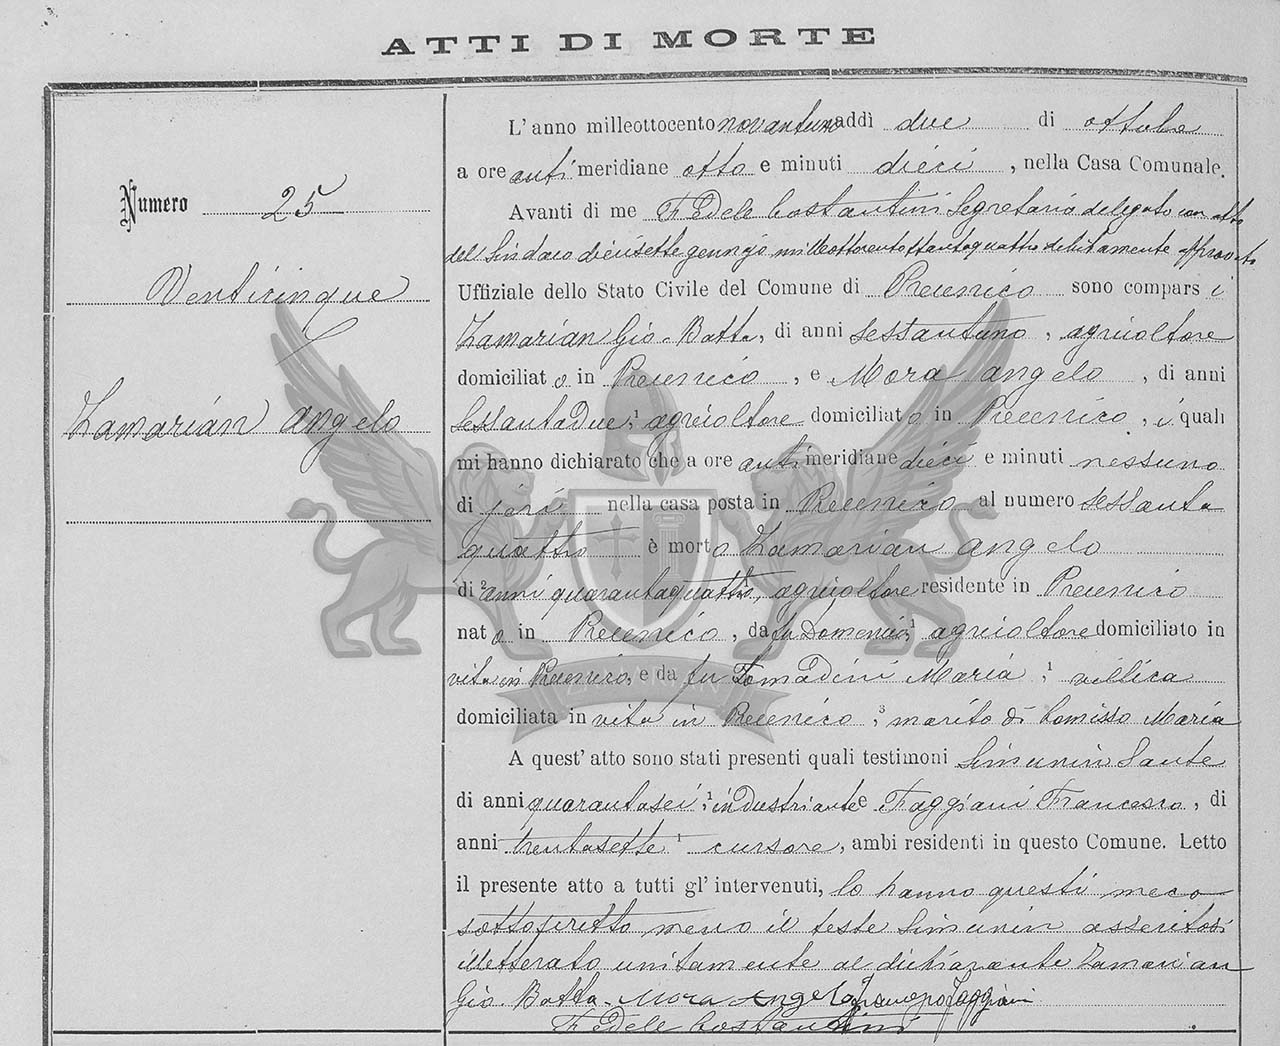 ATTI DI MORTE
Numero 25
Venticinque
Zamarian Angelo
L' anno milleottocento novantuno addì due di ottobre
a ore anti meridiane otto e minuti dieci, nella Casa Comunale.
Avanti di me Fedele Costantini Segretario delegato con atto
del Sindaco diecisette gennajo milleottocentottantaquattro debitamente approvato
Uffiziale dello Stato Civile del Comune di Precenico sono compars i
Zamarian Gio. Batta, di anni sessantuno, agricoltore
domiciliat o in Precenico, e Mora Angelo, di anni
sessantadue, ¹ agricoltore domiciliat o in Precenico, i quali
mi hanno dichiarato che a ore anti meridiane dieci e minuti nessuno
di jeri nella casa posta in Precenico al numero sessanta
quattro è mort o Zamarian Angelo
di ² anni quarantaquattro, agricoltore residente in Precenico
nat o in Precenico, da fu Domenico, ¹ agricoltore domiciliato in
vita in Precenico, e da fu Tomadini Maria, ¹ villica
domiciliata in vita in Precenico, ³ marito di Comisso Maria
A quest' atto sono stati presenti quali testimoni Simunin Sante
di anni quarantasei, ¹ industriante e Faggiani Francesco, di
anni trentasette ¹ cursore, ambi residenti in questo Comune. Letto
il presente atto a tutti gl' intervenuti, lo hanno questi meco
sottoscritto meno il teste Simunin asseritosi
illetterato unitamente al dichiarante Zamarian
Gio. Batta. Mora Angelo Francesco Faggiani
Fedele Costantini
ZAMARIAN